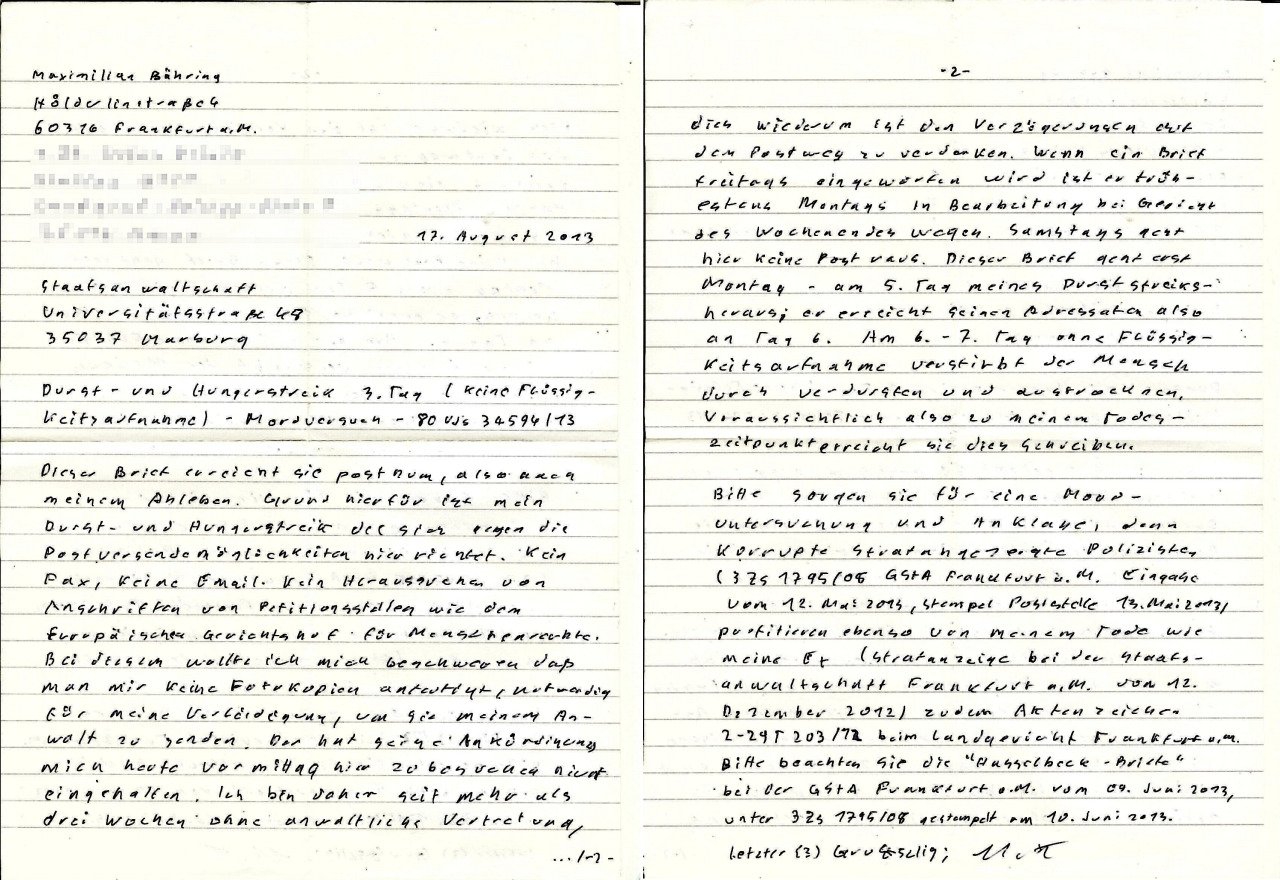 Maximilian Bähring
Hölderlinstraße 4
60316 Frankfurt a.M.
17. August 2013
Staatsanwaltschaft
Universitätsstraße 48
35037 Marburg
Durst- und Hungerstreik 3. Tag (keine Flüssig-
keitsaufnahme) - Mordversuch - 80 UJs 34594/13
Dieser Brief erreicht sie posthum, also nach
meinem Ableben. Grund hierfür ist mein
Durst- und Hungerstreik der sich gegen die
Postversendemöglichkeiten hier richtet. Kein
Fax, keine Email. Kein Heraussuchen von
Anschriften von Petitionsstellen wie dem
Europäischen Gerichtshof für Menschenrechte.
Bei diesem wollte ich mich beschweren daß
man mir keine Fotokopien anfertigt, notwendig
für meine Verteidigung, um sie meinem An-
walt zu senden. Der hat seine Ankündigung
mich heute Vormittag hier zu besuchen nicht
eingehalten. Ich bin daher seit mehr als
drei Wochen ohne anwaltliche Vertretung,
.../-2-
-2-
dies wiederum ist den Verzögerungen auf
dem Postweg zu verdanken. Wenn ein Brief
freitags eingeworfen wird ist er früh-
estens Montags in Bearbeitung bei Gericht
des Wochenendes wegen. Samstags geht
hier keine Post raus. Dieser Brief geht erst
Montag - am 5. Tag meines Durststreiks -
heraus; er erreicht seinen Adressaten also
an Tag 6. Am 6. - 7. Tag ohne Flüssig-
keitsaufnahme verstirbt der Mensch
durch verdursten und austrocknen.
Voraussichtlich also zu meinem Todes-
zeitpunkt erreicht sie dies Schreiben.
Bitte sorgen sie für eine Mord-
untersuchung und Anklage, denn
korrupte strafangezeigte Polizisten
(3 Zs 1795/08 GStA Frankfurt a.M. Eingabe
vom 12. Mai 2013, Stempel Poststelle 13. Mai 2013)
profitieren ebenso von meinem Tode wie
meine Ex (Strafanzeige bei der Staats-
anwaltschaft Frankfurt a.M. vom 12.
Dezember 2012) zudem Aktenzeichen
2-29T 203/12 beim Landgericht Frankfurt a.M.
Bitte beachten Sie die "Hasselbeck-Briefe"
bei der GStA Frankfurt a.M. vom 09. Juni 2013,
unter 3 Zs 1795/08 gestempelt am 10. Juni 2013.
Letzter (3) Gruß